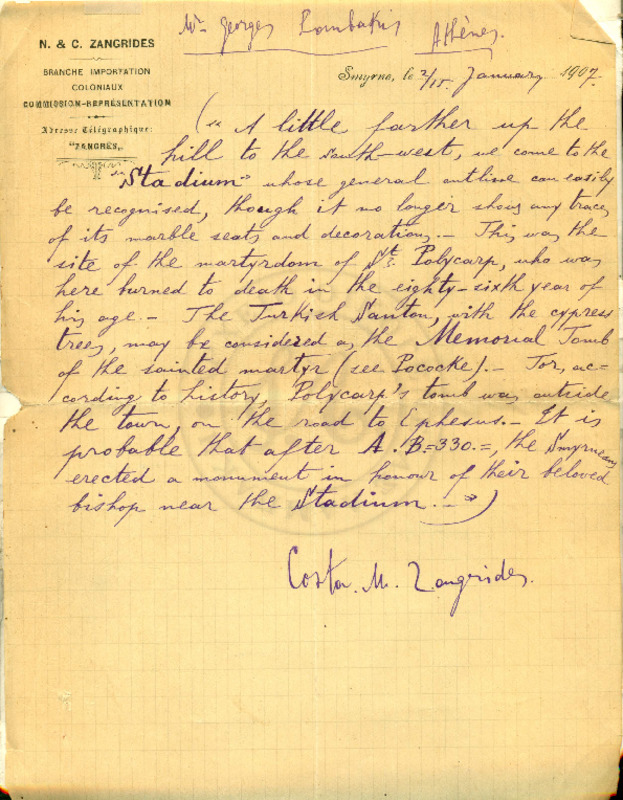 Mr Georges Lambakis
Athènes.
N. & C. ZANGRIDES
BRANCHE IMPORTATION
COLONIAUX
COMMISSION-REPRÉSENTATION
Adresse Télégraphique:
"ZANGRES„
Smyrne, le 2/15 January 1907.
(" A little farther up the
hill to the south-west, we come to the
"Stadium" whose general outline can easily
be recognised, though it no longer shows any traces
of its marble seats and decorations.— This was the
site of the martyrdom of St. Polycarp, who was
here burned to death in the eighty-sixth year of
his age.— The Turkish Santon, with the cypress
trees, may be considered as the Memorial Tomb
of the sainted martyr (see Pococke).— For, ac=
cording to history, Polycarp's tomb was outside
the town, on the road to Ephesus.— It is
probable that after A. B=330.=, the Smyrneans
erected a monument in honour of their beloved
bishop near the Stadium.—")
Costa. M. Zangrides.